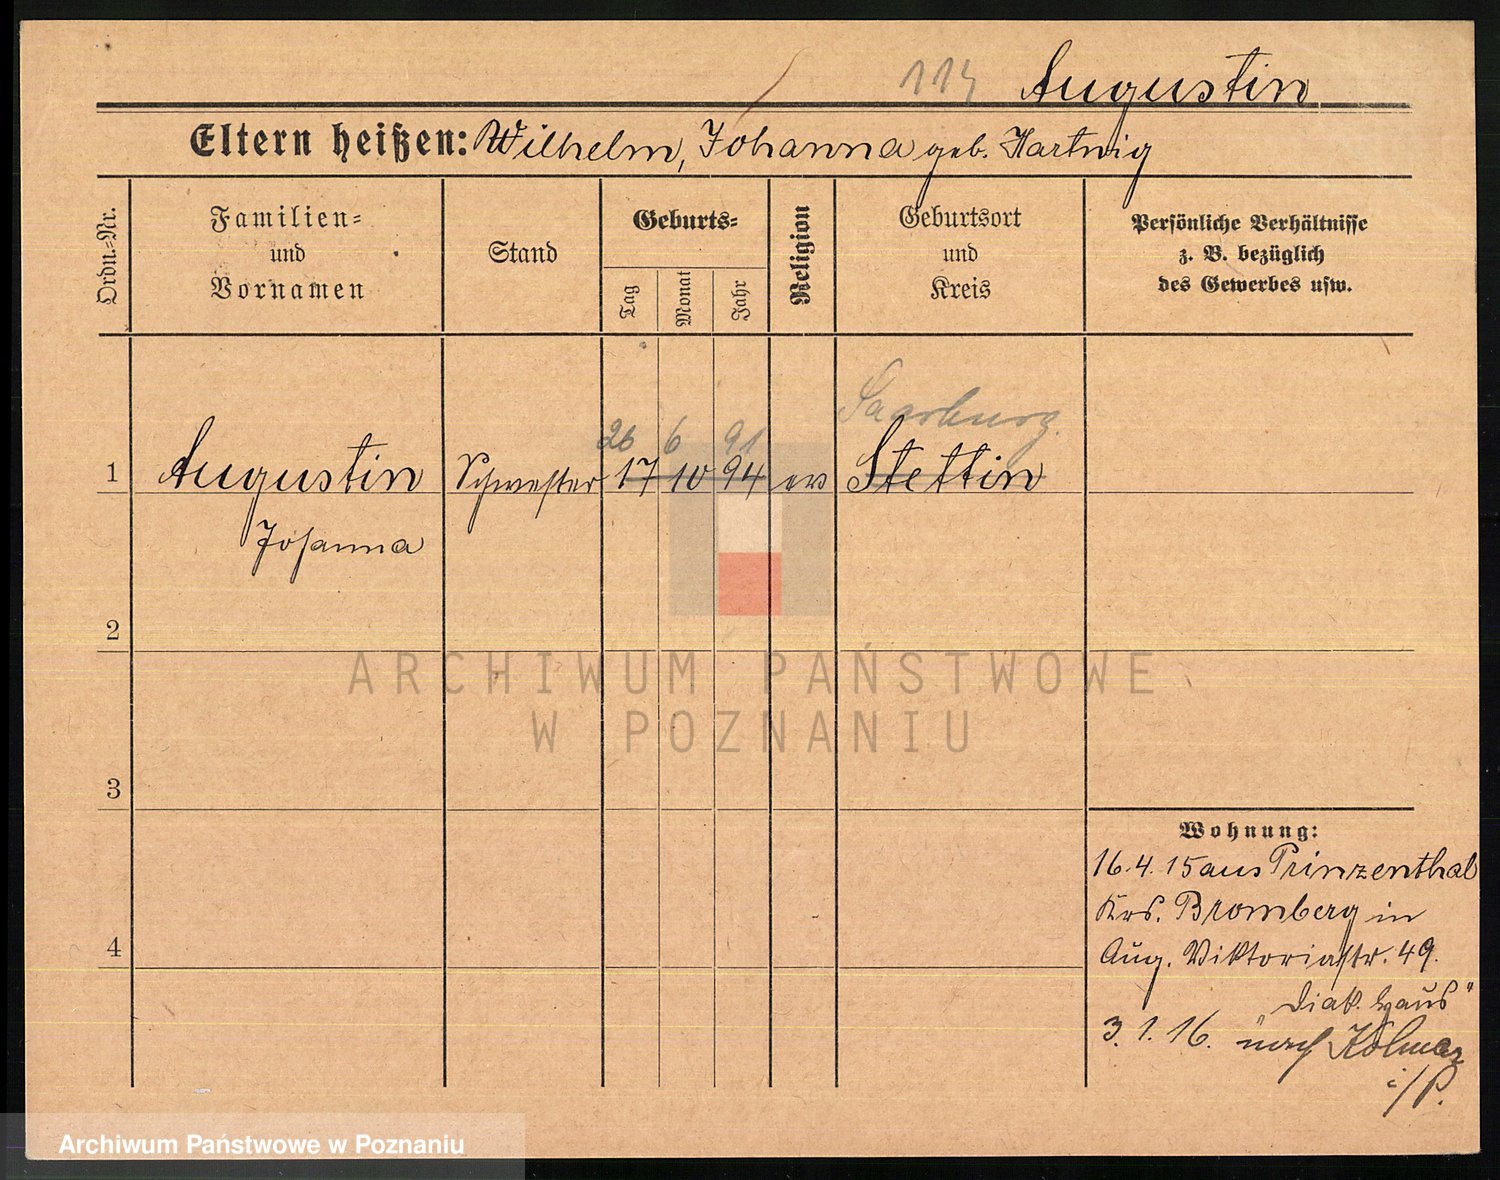 114 Augustin
Eltern heißen: Wilhelm, Johanna geb. Hartwig
Ordn.-Nr.
Familien-
und
Vornamen
Stand
Geburts-
Tag
Monat
Jahr
Religion
Geburtsort
und
Kreis
Persönliche Verhältnisse
z. B. bezüglich
des Gewerbes usw.
26 6 91 Saarburg.
1 Augustin Schwester 17 10 94 ev Stettin
Johanna
2
3
4
Wohnung:
16.4.15 aus Prinzenthal
Krs. Bromberg in
Aug. Viktoriastr. 49.
"Diak. Haus"
3.1.16. nach Kolmar
i/P.
ARCHIWUM PAŃSTWOWE
W POZNANIU
Archiwum Państwowe w Poznaniu